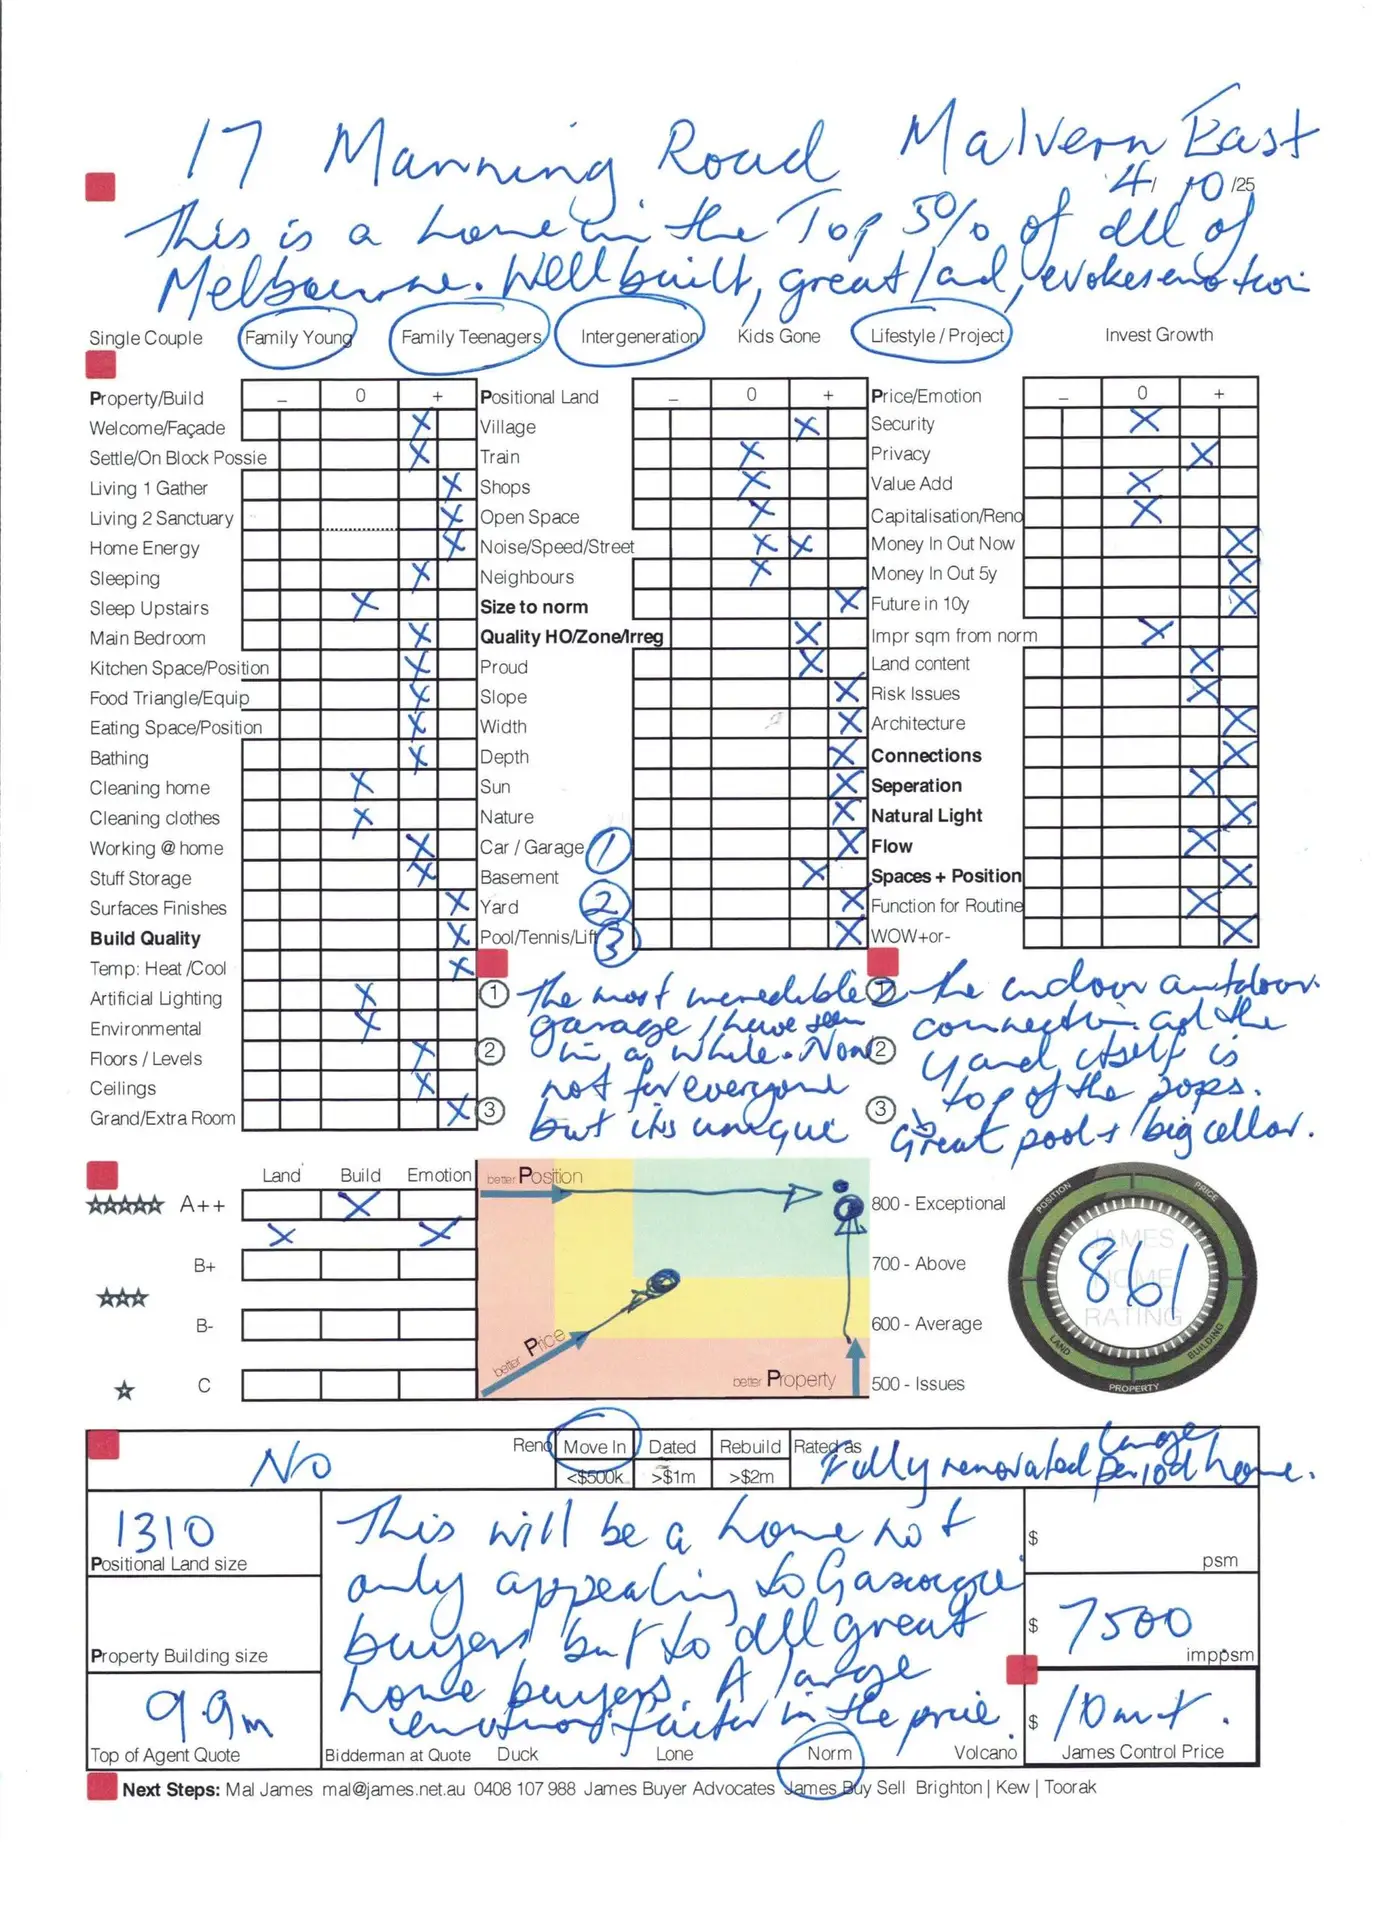 17 Manning Road Malvern East
4/10/25
This is a home in the Top 5% of all of
Melbourne. Well built, great land, evokes emotion
Single Couple Family Young Family Teenagers Intergeneration Kids Gone Lifestyle / Project Invest Growth
Property/Build – 0 + Positional Land – 0 + Price/Emotion – 0 +
Welcome/Façade X Village X Security X
Settle/On Block Possie X Train X Privacy X
Living 1 Gather X Shops X Value Add X
Living 2 Sanctuary X Open Space X Capitalisation/Reno X
Home Energy X Noise/Speed/Street X X Money In Out Now X
Sleeping X Neighbours X Money In Out 5y X
Sleep Upstairs X Size to norm X Future in 10y X
Main Bedroom X Quality HO/Zone/Irreg X Impr sqm from norm X
Kitchen Space/Position X Proud X Land content X
Food Triangle/Equip X Slope X Risk Issues X
Eating Space/Position X Width X Architecture X
Bathing X Depth X Connections X
Cleaning home X Sun X Seperation X
Cleaning clothes X Nature X Natural Light X
Working @ home X Car / Garage 1 X Flow X
Stuff Storage X Basement X Spaces + Position X
Surfaces Finishes X Yard 2 X Function for Routine X
Build Quality X Pool/Tennis/Lift 3 X WOW+or- X
Temp: Heat /Cool X
Artificial Lighting X
Environmental X
Floors / Levels X
Ceilings X
Grand/Extra Room X
1 The most incredible
garage I have seen
2 in a while. Now
not for everyone
3 but its unique
1 the indoor outdoor
connection and the
2 yard itself is
top of the pops.
3 Great pool + big cellar.
Land Build Emotion
A++ X
X X
B+
B-
C
better Position
better Price
better Property
800 - Exceptional
700 - Above
600 - Average
500 - Issues
POSITION PRICE
JAMES
HOME
RATING
861
LAND BUILDING
PROPERTY
No Reno Move In Dated Rebuild Rated as Fully renovated large period home.
<$500k >$1m >$2m
1310
Positional Land size
Property Building size
9.9m
Top of Agent Quote
This will be a home not
only appealing to Gascoigne
buyers but to all great
home buyers. A large
emotional factor in the price.
Bidderman at Quote Duck Lone Norm Volcano
$ psm
$ 7500
imppsm
$ 10m+.
James Control Price
Next Steps: Mal James mal@james.net.au 0408 107 988 James Buyer Advocates James Buy Sell Brighton | Kew | Toorak